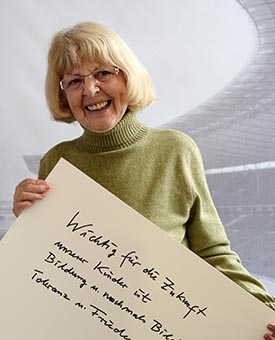 Wichtig für die Zukunft
unserer Kinder ist
Bildung u. nochmals Bild
Toleranz u. Friede